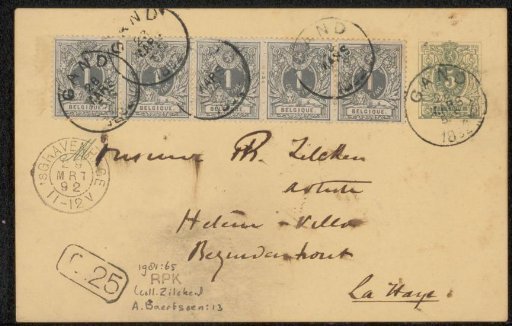 1 1 1 1 1 5
BELGIQUE BELGIQUE BELGIQUE BELGIQUE BELGIQUE
GAND GAND GAND GAND
1892
'SGRAVENHAGE
MRT
92
11-12V
Monsieur Ph. Zilcken
artiste
Helène-Villa
Bezuidenhout
La Haye
C.25
1981:65
RPK
(coll. Zilcken)
A. Baertsoen:13